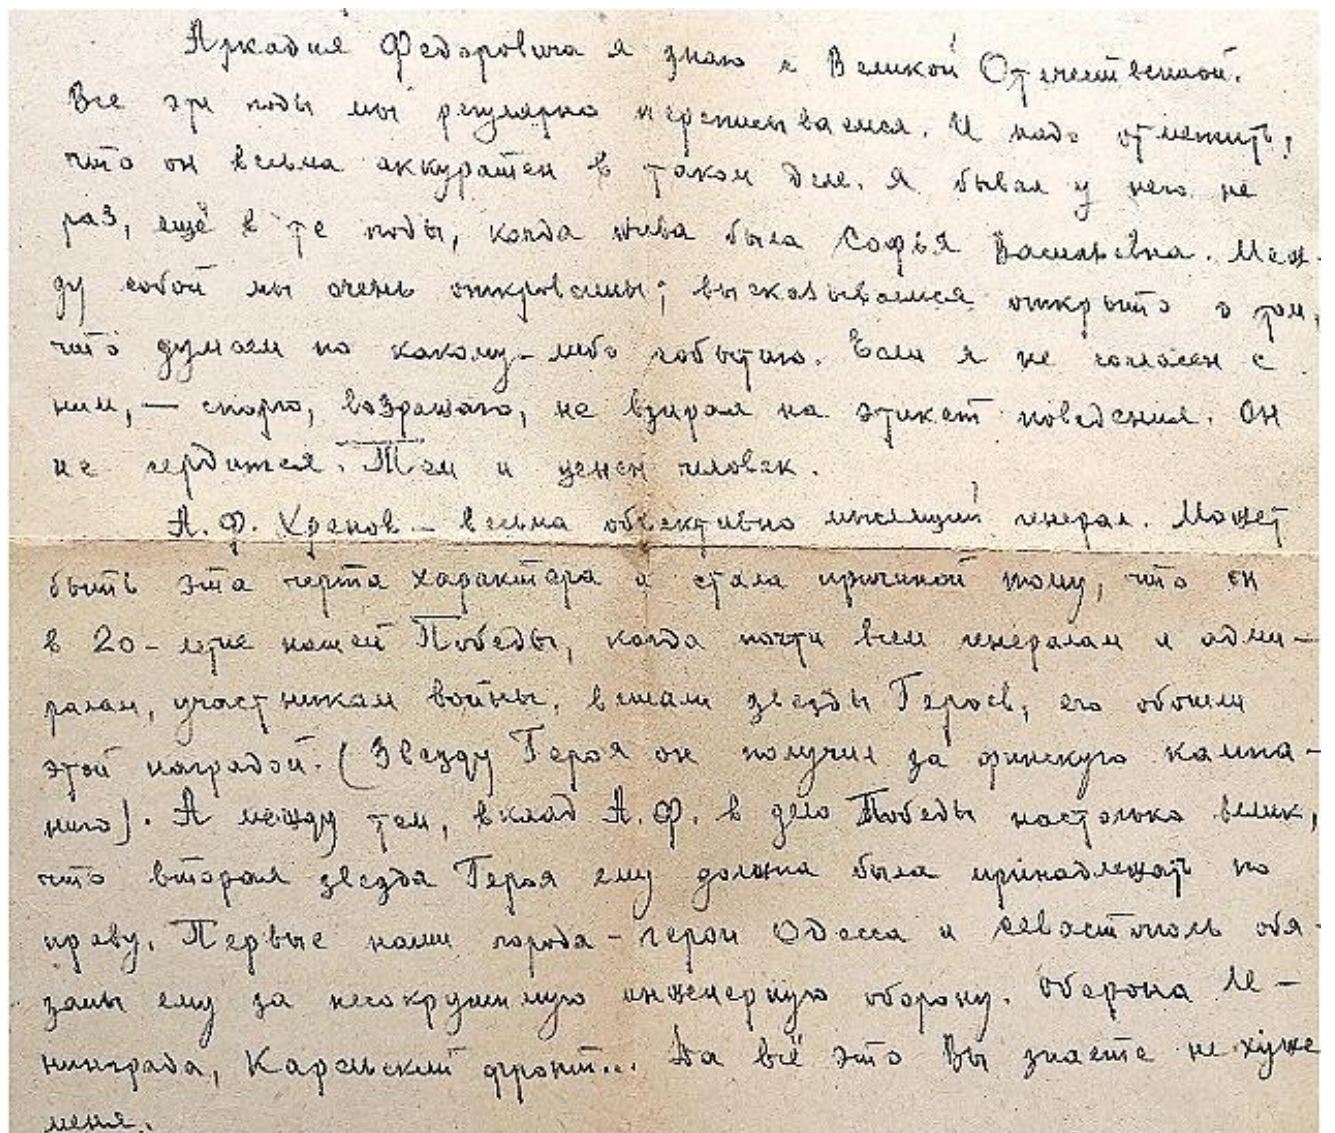 Аркадия Федоровича я знаю с Великой Отечественной.
Все эти годы мы регулярно переписываемся. И надо отметить,
что он весьма аккуратен в таком деле. Я бывал у него не
раз, ещё в те годы, когда жива была Софья Васильевна. Меж-
ду собой мы очень откровенны; высказываемся открыто о том,
что думаем по какому-либо событию. Если я не согласен с
ним, — спорю, возражаю, не взирая на этикет поведения. Он
не сердится. Тем и ценен человек.
А. Ф. Хренов – весьма объективно мыслящий генерал. Может
быть эта черта характера и стала причиной тому, что он
в 20-летие нашей Победы, когда почти всем генералам и адми-
ралам, участникам войны, вешали звезды Героев, его обошли
этой наградой. (Звезду Героя он получил за финскую кампа-
нию). А между тем, вклад А. Ф. в дело Победы настолько велик,
что вторая звезда Героя ему должна была принадлежать по
праву. Первые наши города-герои Одесса и Севастополь обя-
заны ему за несокрушимую инженерную оборону. Оборона Ле-
нинграда, Карельский фронт... Да всё это Вы знаете не хуже
меня.